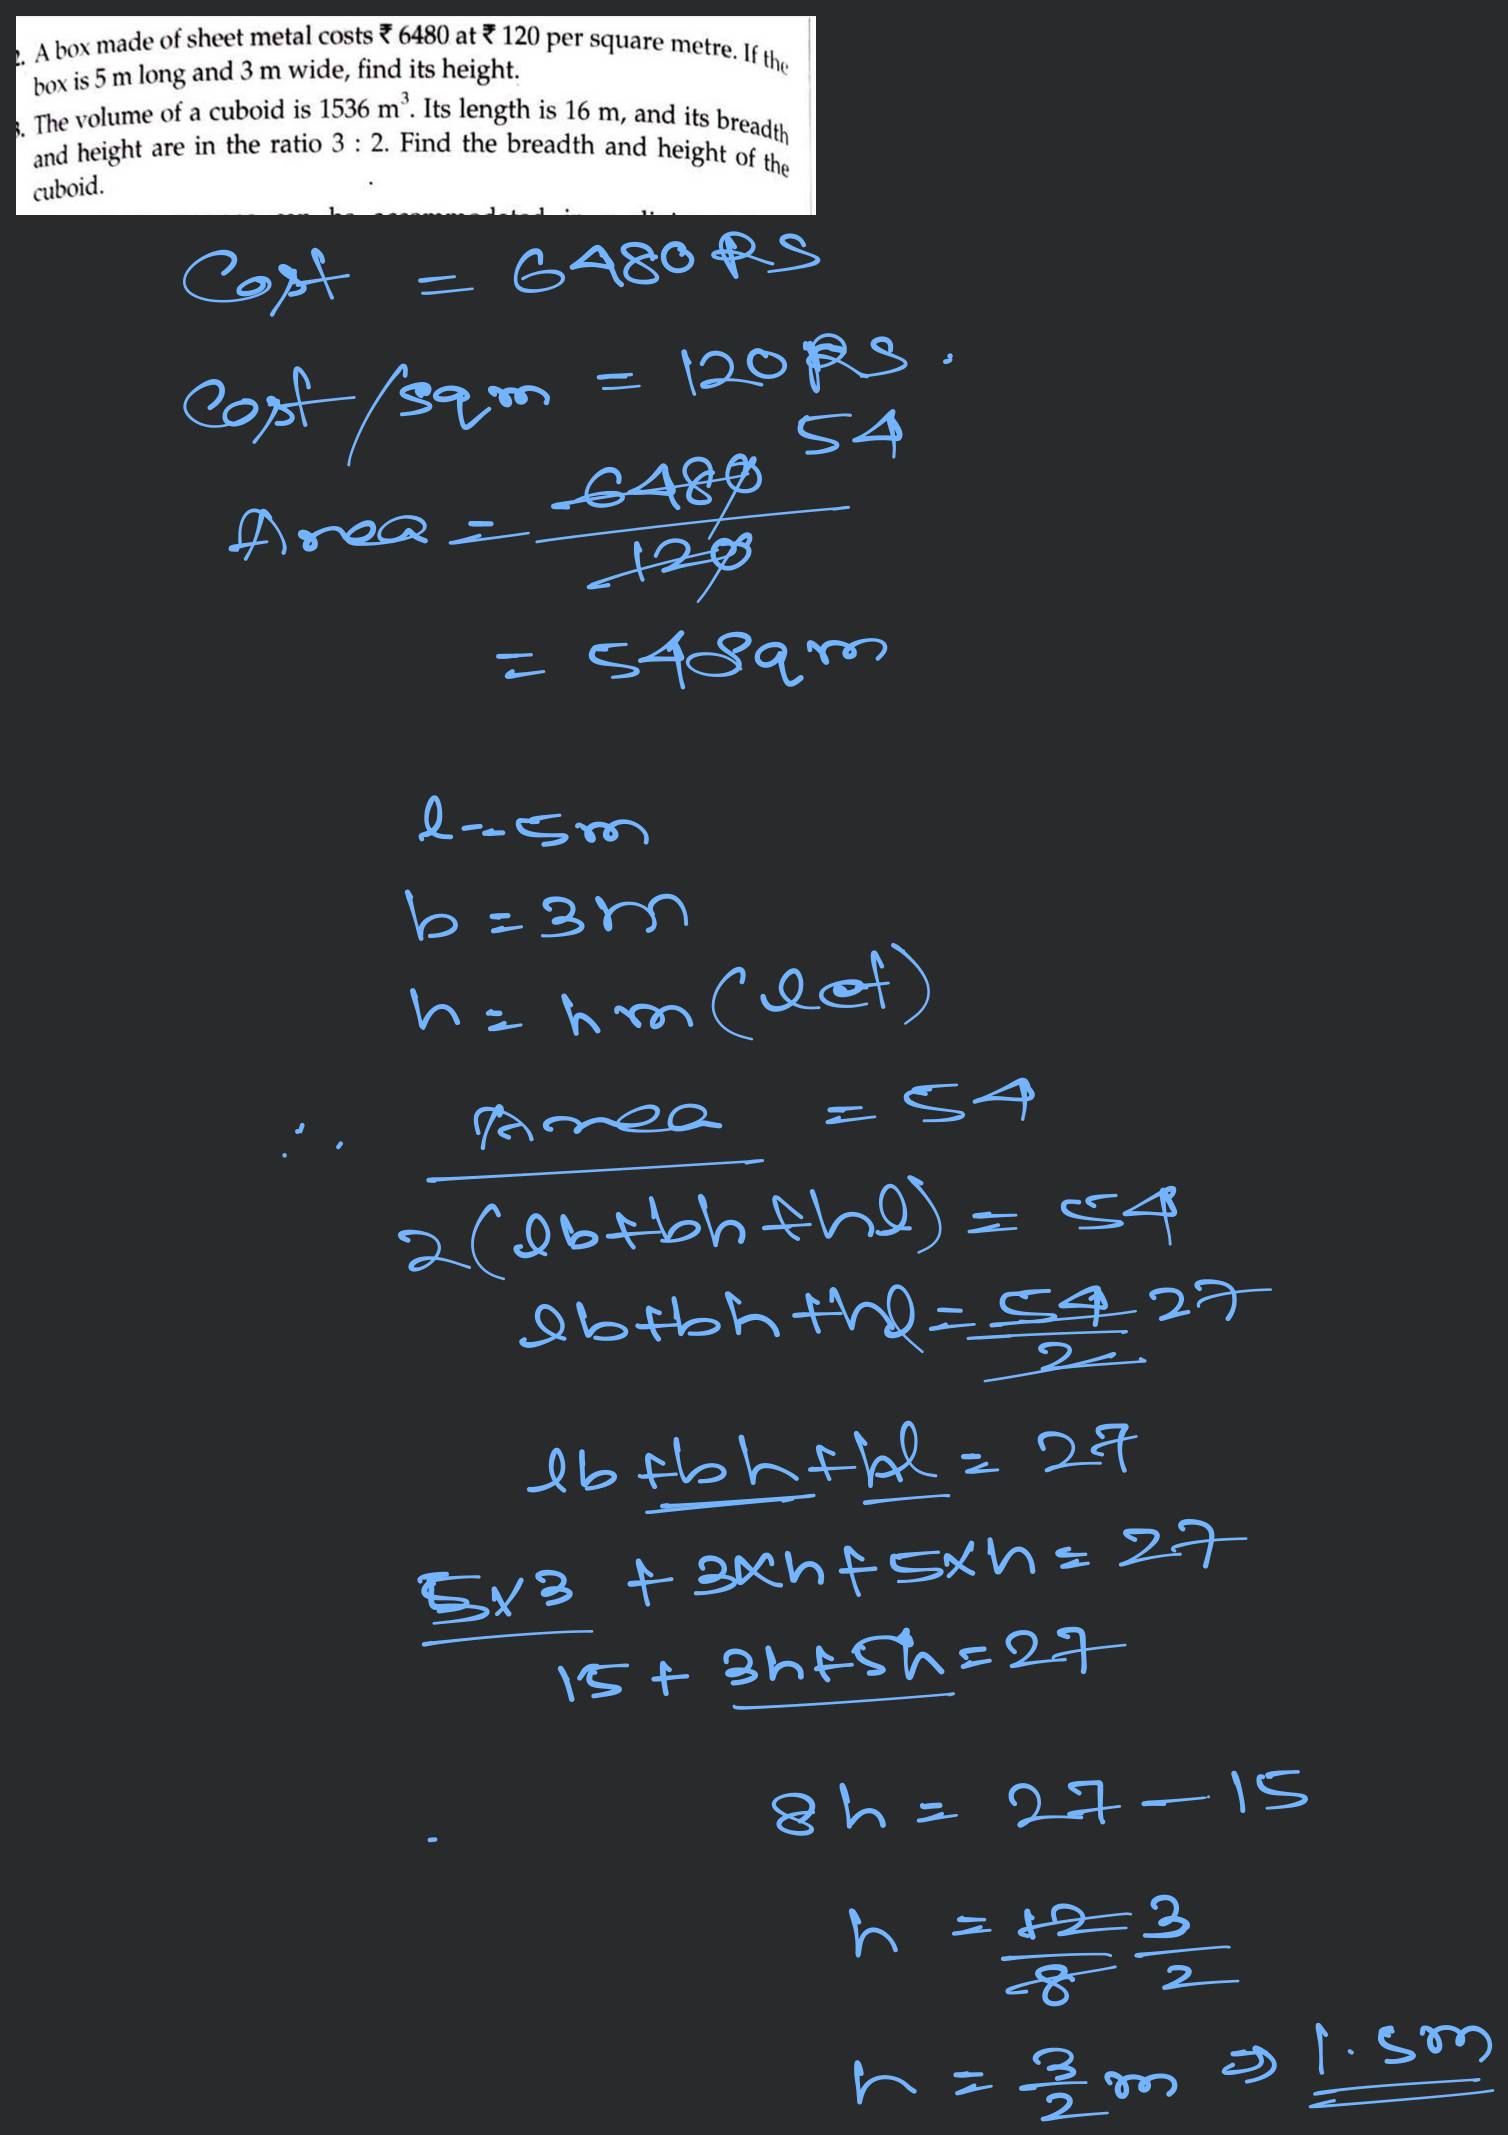 2. A box made of sheet metal costs ₹ 6480 at ₹ 120 per square metre. If the
box is 5 m long and 3 m wide, find its height.
3. The volume of a cuboid is 1536 m³. Its length is 16 m, and its breadth
and height are in the ratio 3 : 2. Find the breadth and height of the
cuboid.
Cost = 6480 RS
Cost/sqm = 120 RS.
54
Area = 6480/120
= 54 sqm
l = 5m
b = 3m
h = hm (let)
∴ Area = 54
2(lb+bh+hl) = 54
lb+bh+hl = 54/2 27
lb+bh+hl = 27
5x3 + 3xh+5xh = 27
15 + 3h+5h = 27
8h = 27 - 15
h = 12/8 3/2
h = 3/2 m ⇒ 1.5m